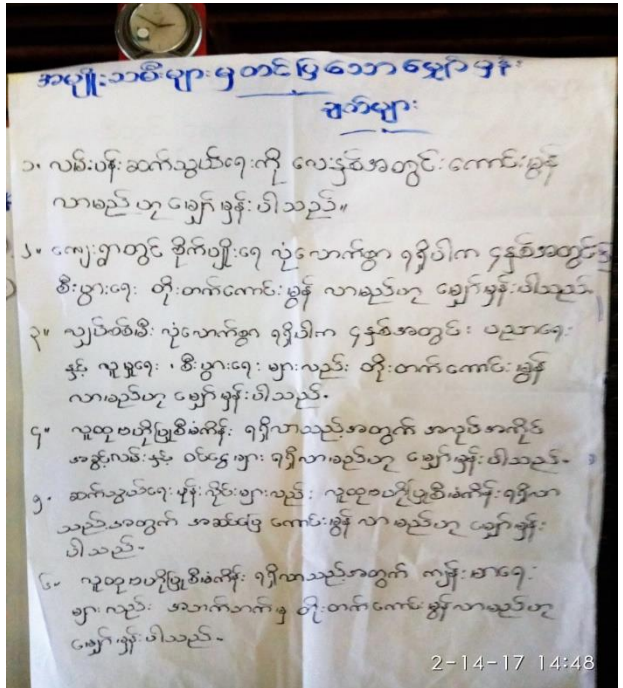 အမျိုးသမီးများမှတင်ပြသောမျှော်မှန်း
ချက်များ
၁။ လမ်းပန်းဆက်သွယ်ရေးကို လေးနှစ်အတွင်းကောင်းမွန်
လာမည်ဟု မျှော်မှန်းပါသည်။
၂။ ကျေးရွာတွင် စိုက်ပျိုးရေ လုံလောက်စွာ ရရှိပါက ၄နှစ်အတွင်း
စီးပွားရေး တိုးတက်ကောင်းမွန် လာမည်ဟု မျှော်မှန်းပါသည်။
၃။ လျှပ်စစ်မီး လုံလောက်စွာ ရရှိပါက ၄နှစ်အတွင်း ပညာရေး
နှင့် လူမှုရေး ၊ စီးပွားရေး များလည်း တိုးတက်ကောင်းမွန်
လာမည်ဟု မျှော်မှန်းပါသည်။
၄။ လူထုဗဟိုပြုစီမံကိန်း ရရှိလာသည့်အတွက် အလုပ်အကိုင်
အခွင့်လမ်းနှင့် ဝင်ငွေများ ရရှိလာမည်ဟု မျှော်မှန်းပါသည်။
၅။ ဆက်သွယ်ရေးဖုန်းလိုင်းများလည်း လူထုဗဟိုပြုစီမံကိန်းရရှိလာ
သည့်အတွက် အဆင်ပြေ ကောင်းမွန် လာမည်ဟု မျှော်မှန်း
ပါသည်။
၆။ လူထုဗဟိုပြုစီမံကိန်း ရရှိလာသည့်အတွက် ကျန်းမာရေး
များလည်း တိုးတက်ကောင်းမွန်လာမည်ဟု
မျှော်မှန်းပါသည်။
2-14-17 14:48